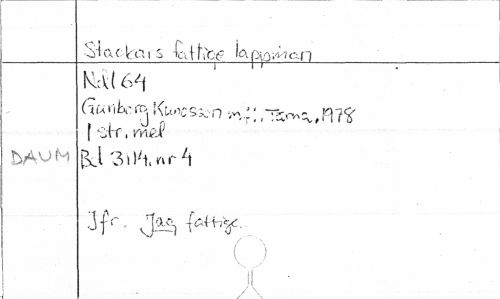 Stackars fattige lappman
Ndl 64
Gunborg Kunosson m.fl., Tärna, 1978
1 str, mel
DAUM Bd 3114, nr 4
Jfr. Jag fattige